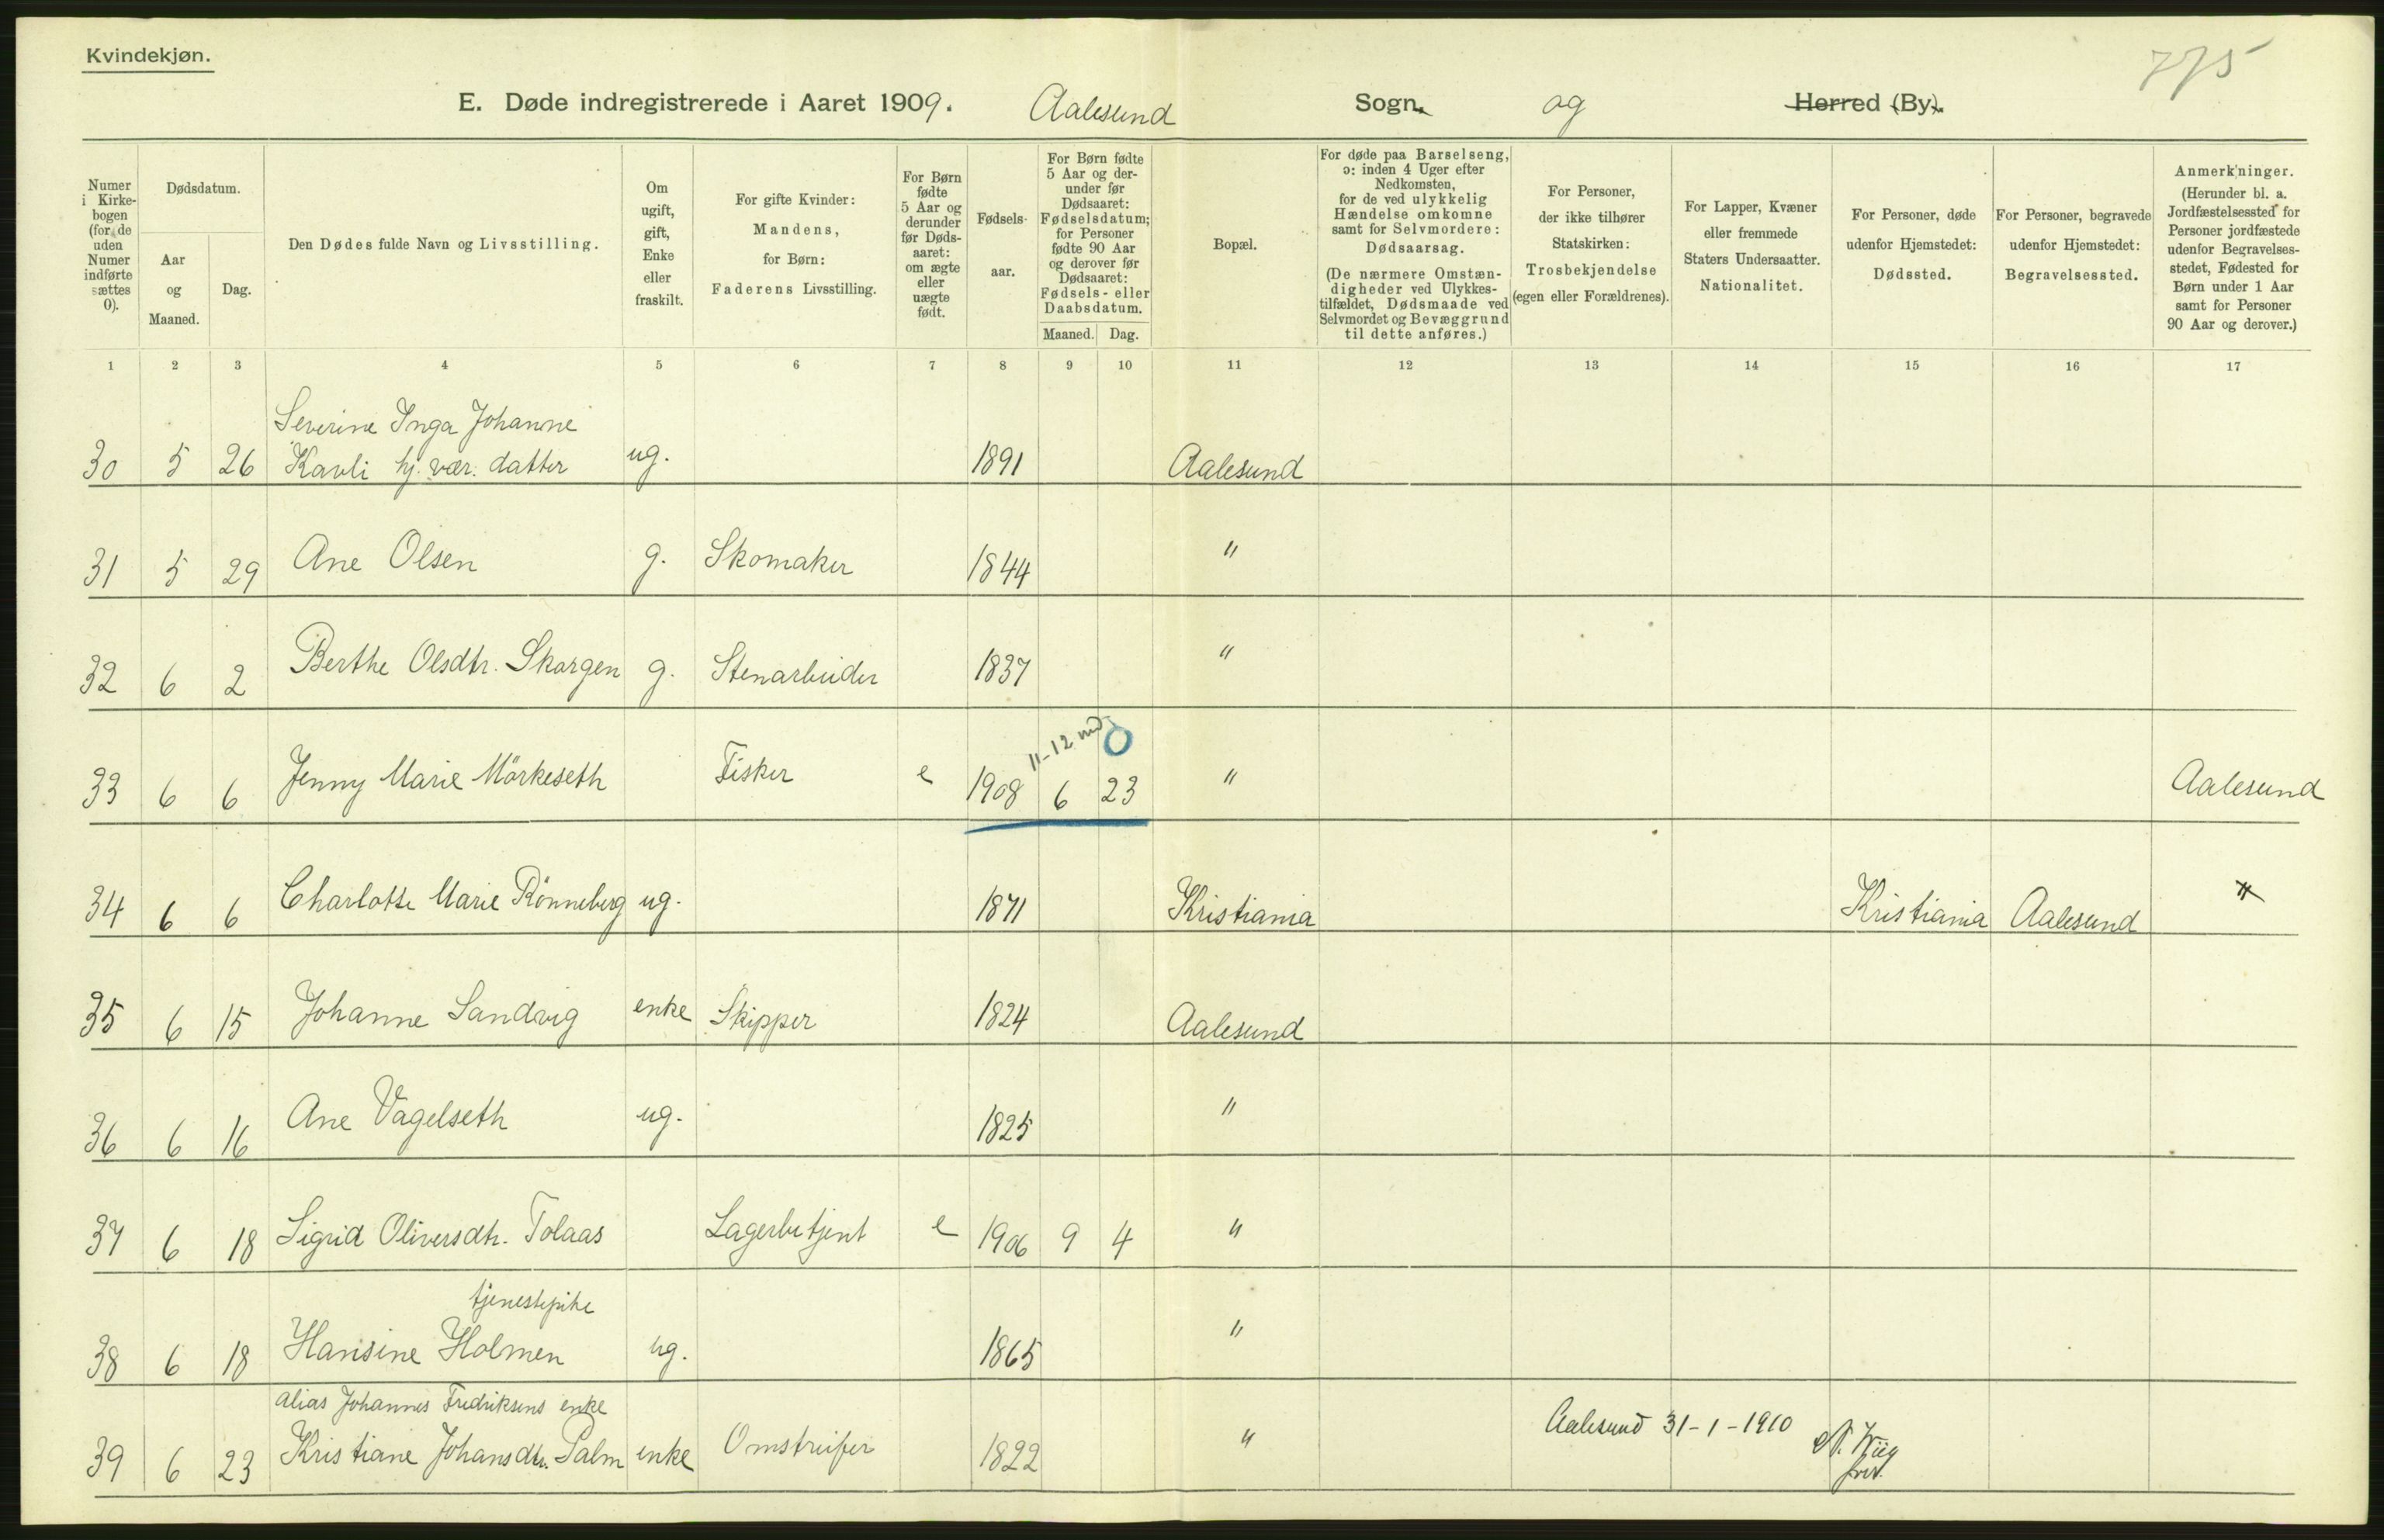 Kvindekjøn.
775
E. Døde indregistrerede i Aaret 1909. Aalesund Sogn. og Herred (By).
Numer i Kirkebogen (for de uden Numer indførte sættes 0).
Dødsdatum.
Aar og Maaned.
Dag.
Den Dødes fulde Navn og Livsstilling.
Om ugift, gift, Enke eller fraskilt.
For gifte Kvinder: Mandens, for Børn: Faderens Livsstilling.
For Børn fødte 5 Aar og derunder før Dødsaaret: om ægte eller uægte født.
Fødselsaar.
For Børn fødte 5 Aar og derunder før Dødsaaret: Fødselsdatum; for Personer fødte 90 Aar og derover før Dødsaaret: Fødsels- eller Daabsdatum.
Maaned. Dag.
Bopæl.
For døde paa Barselseng, ɔ: inden 4 Uger efter Nedkomsten, for de ved ulykkelig Hændelse omkomne samt for Selvmordere: Dødsaarsag.
(De nærmere Omstændigheder ved Ulykkestilfældet, Dødsmaade ved Selvmordet og Bevæggrund til dette anføres.)
For Personer, der ikke tilhører Statskirken: Trosbekjendelse (egen eller Forældrenes).
For Lapper, Kvæner eller fremmede Staters Undersaatter. Nationalitet.
For Personer, døde udenfor Hjemstedet: Dødssted.
For Personer, begravede udenfor Hjemstedet: Begravelsessted.
Anmerkninger.
(Herunder bl. a. Jordfæstelsessted for Personer jordfæstede udenfor Begravelsesstedet, Fødested for Børn under 1 Aar samt for Personer 90 Aar og derover.)
1 2 3 4 5 6 7 8 9 10 11 12 13 14 15 16 17
Severine Inga Johanne
30 5 26 Kavli hj. vær. datter ug. 1891 Aalesund
31 5 29 Ane Olsen g. Skomaker 1844 "
32 6 2 Berthe Olsdtr. Skorgen g. Stenarbeider 1837 "
11-12 md 0
33 6 6 Jenny Marie Mörkeseth Fisker e 1908 6 23 " Aalesund
34 6 6 Charlotte Marie Rönneberg ug. 1871 Kristiania Kristiania Aalesund "
35 6 15 Johanne Sandvig enke Skipper 1824 Aalesund
36 6 16 Ane Vagelseth ug. 1825 "
37 6 18 Sigrid Oliversdtr. Tolaas Lagerbetjent e 1906 9 4 "
tjenestepike
38 6 18 Hansine Holmen ug. 1865 "
alias Johannes Fredriksens enke
39 6 23 Kristiane Johansdtr. Palm enke Omstreifer 1822 " Aalesund 31-1-1910